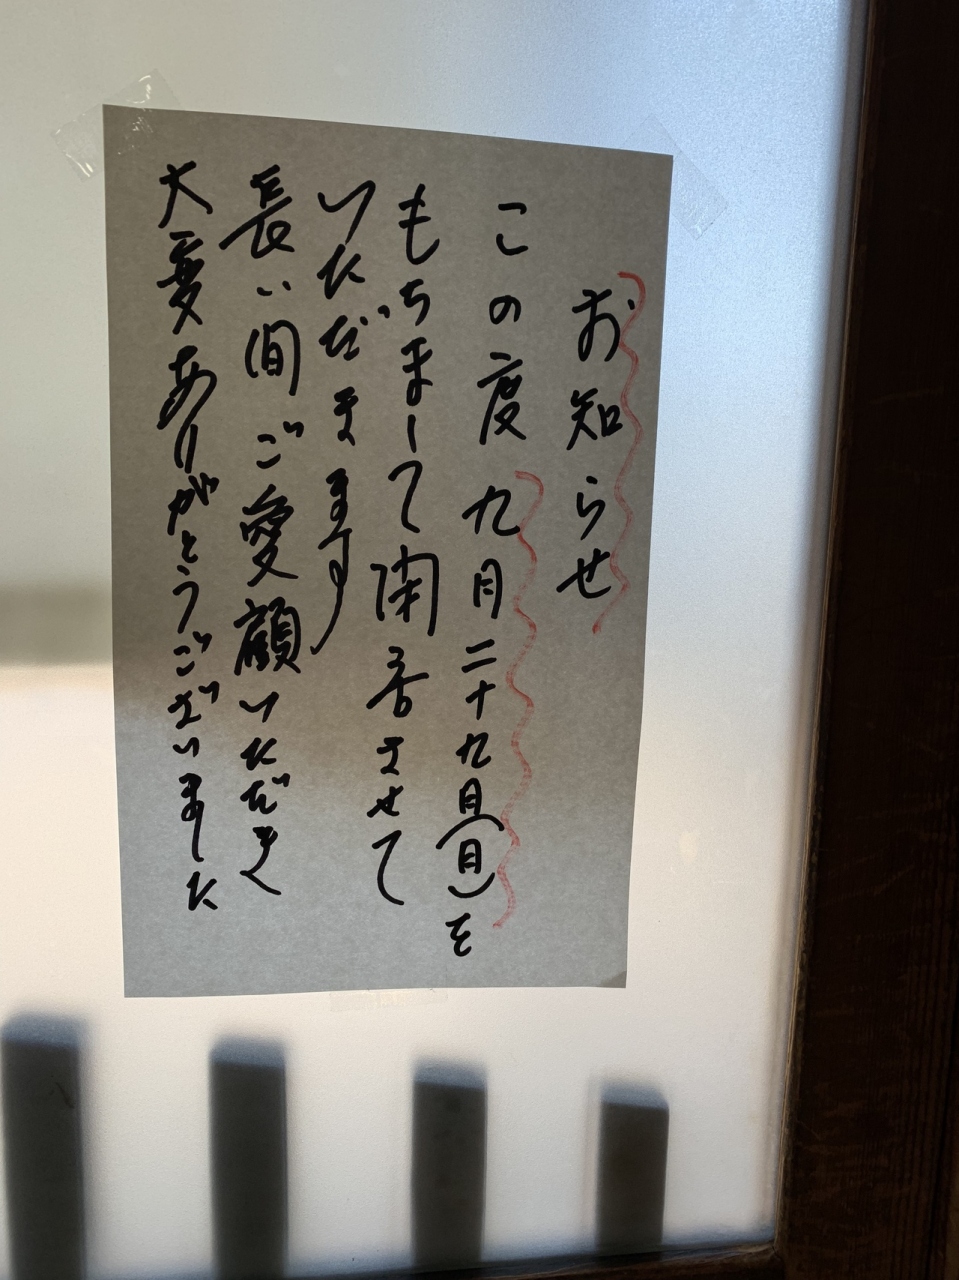 お知らせ
この度九月二十九日(日)を
もちまして閉店させて
いただきます
長い間ご愛顧いただき
大変ありがとうございました